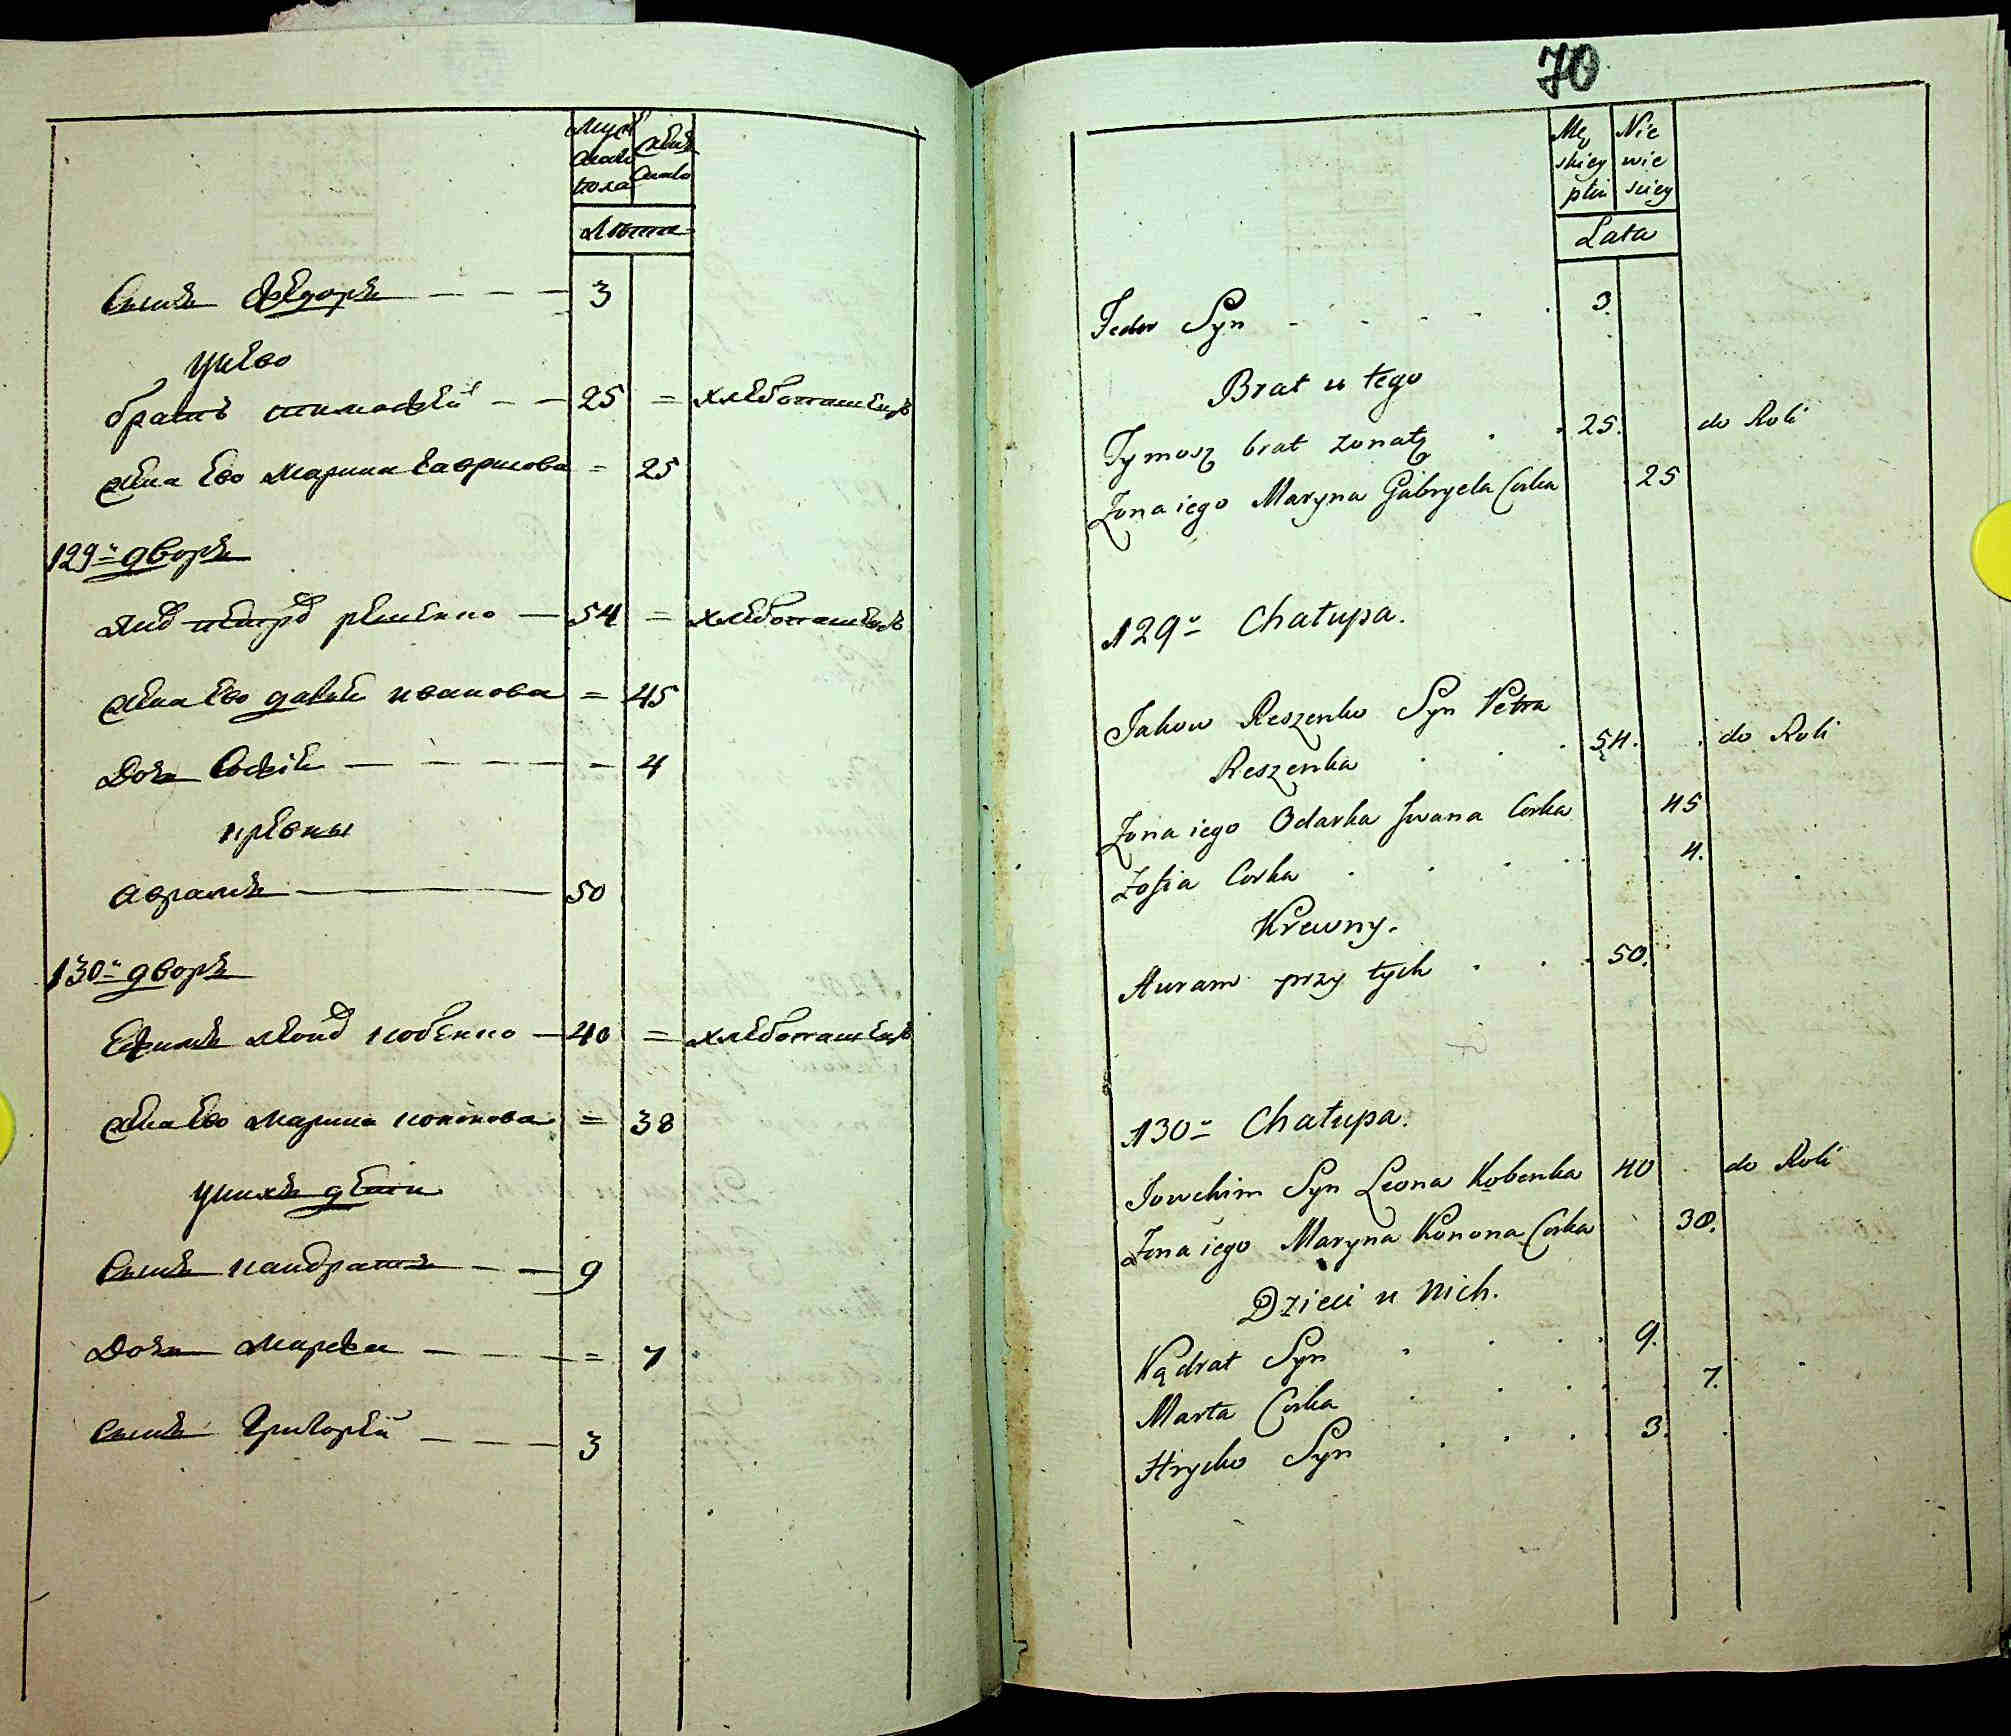 Мужеска пола
женска
Лѣта
Сынъ Федоръ 3
У нево
братъ тимофей 25 = хлебопашецъ
Жена Ево Марина Гаврилова = 25
129й дворъ
54 = хлебопашецъ
Жена Ево Иванова = 45
Дочь Софія 4
кревны
Аврамъ 50
130й дворъ
40 = хлебопашецъ
Жена Ево Марина кононова = 38
У нихъ дети
Сынъ кандратъ 9
Дочь Марфа = 7
Сынъ Григорей 3
70
Mę Nie
skiey wie
płci sciey
Lata
Fedor Syn 3.
Brat u tego
Tymosz brat zonaty 25. do Roli
Zona iego Maryna Gabryela Corka 25
129a Chałupa.
Jakow Reszenko Syn Petra
Reszenka 54. do Roli
Zona iego Odarka Jwana Corka 45
Zofia Corka 4.
Krewny.
Auram przy tych 50.
130a Chałupa.
Jowchim Syn Leona Kobenka 40 do Roli
Zona iego Maryna Konona Corka 38.
Dzieci u nich.
Kądrat Syn 9.
Marta Corka 7.
Hrycko Syn 3.